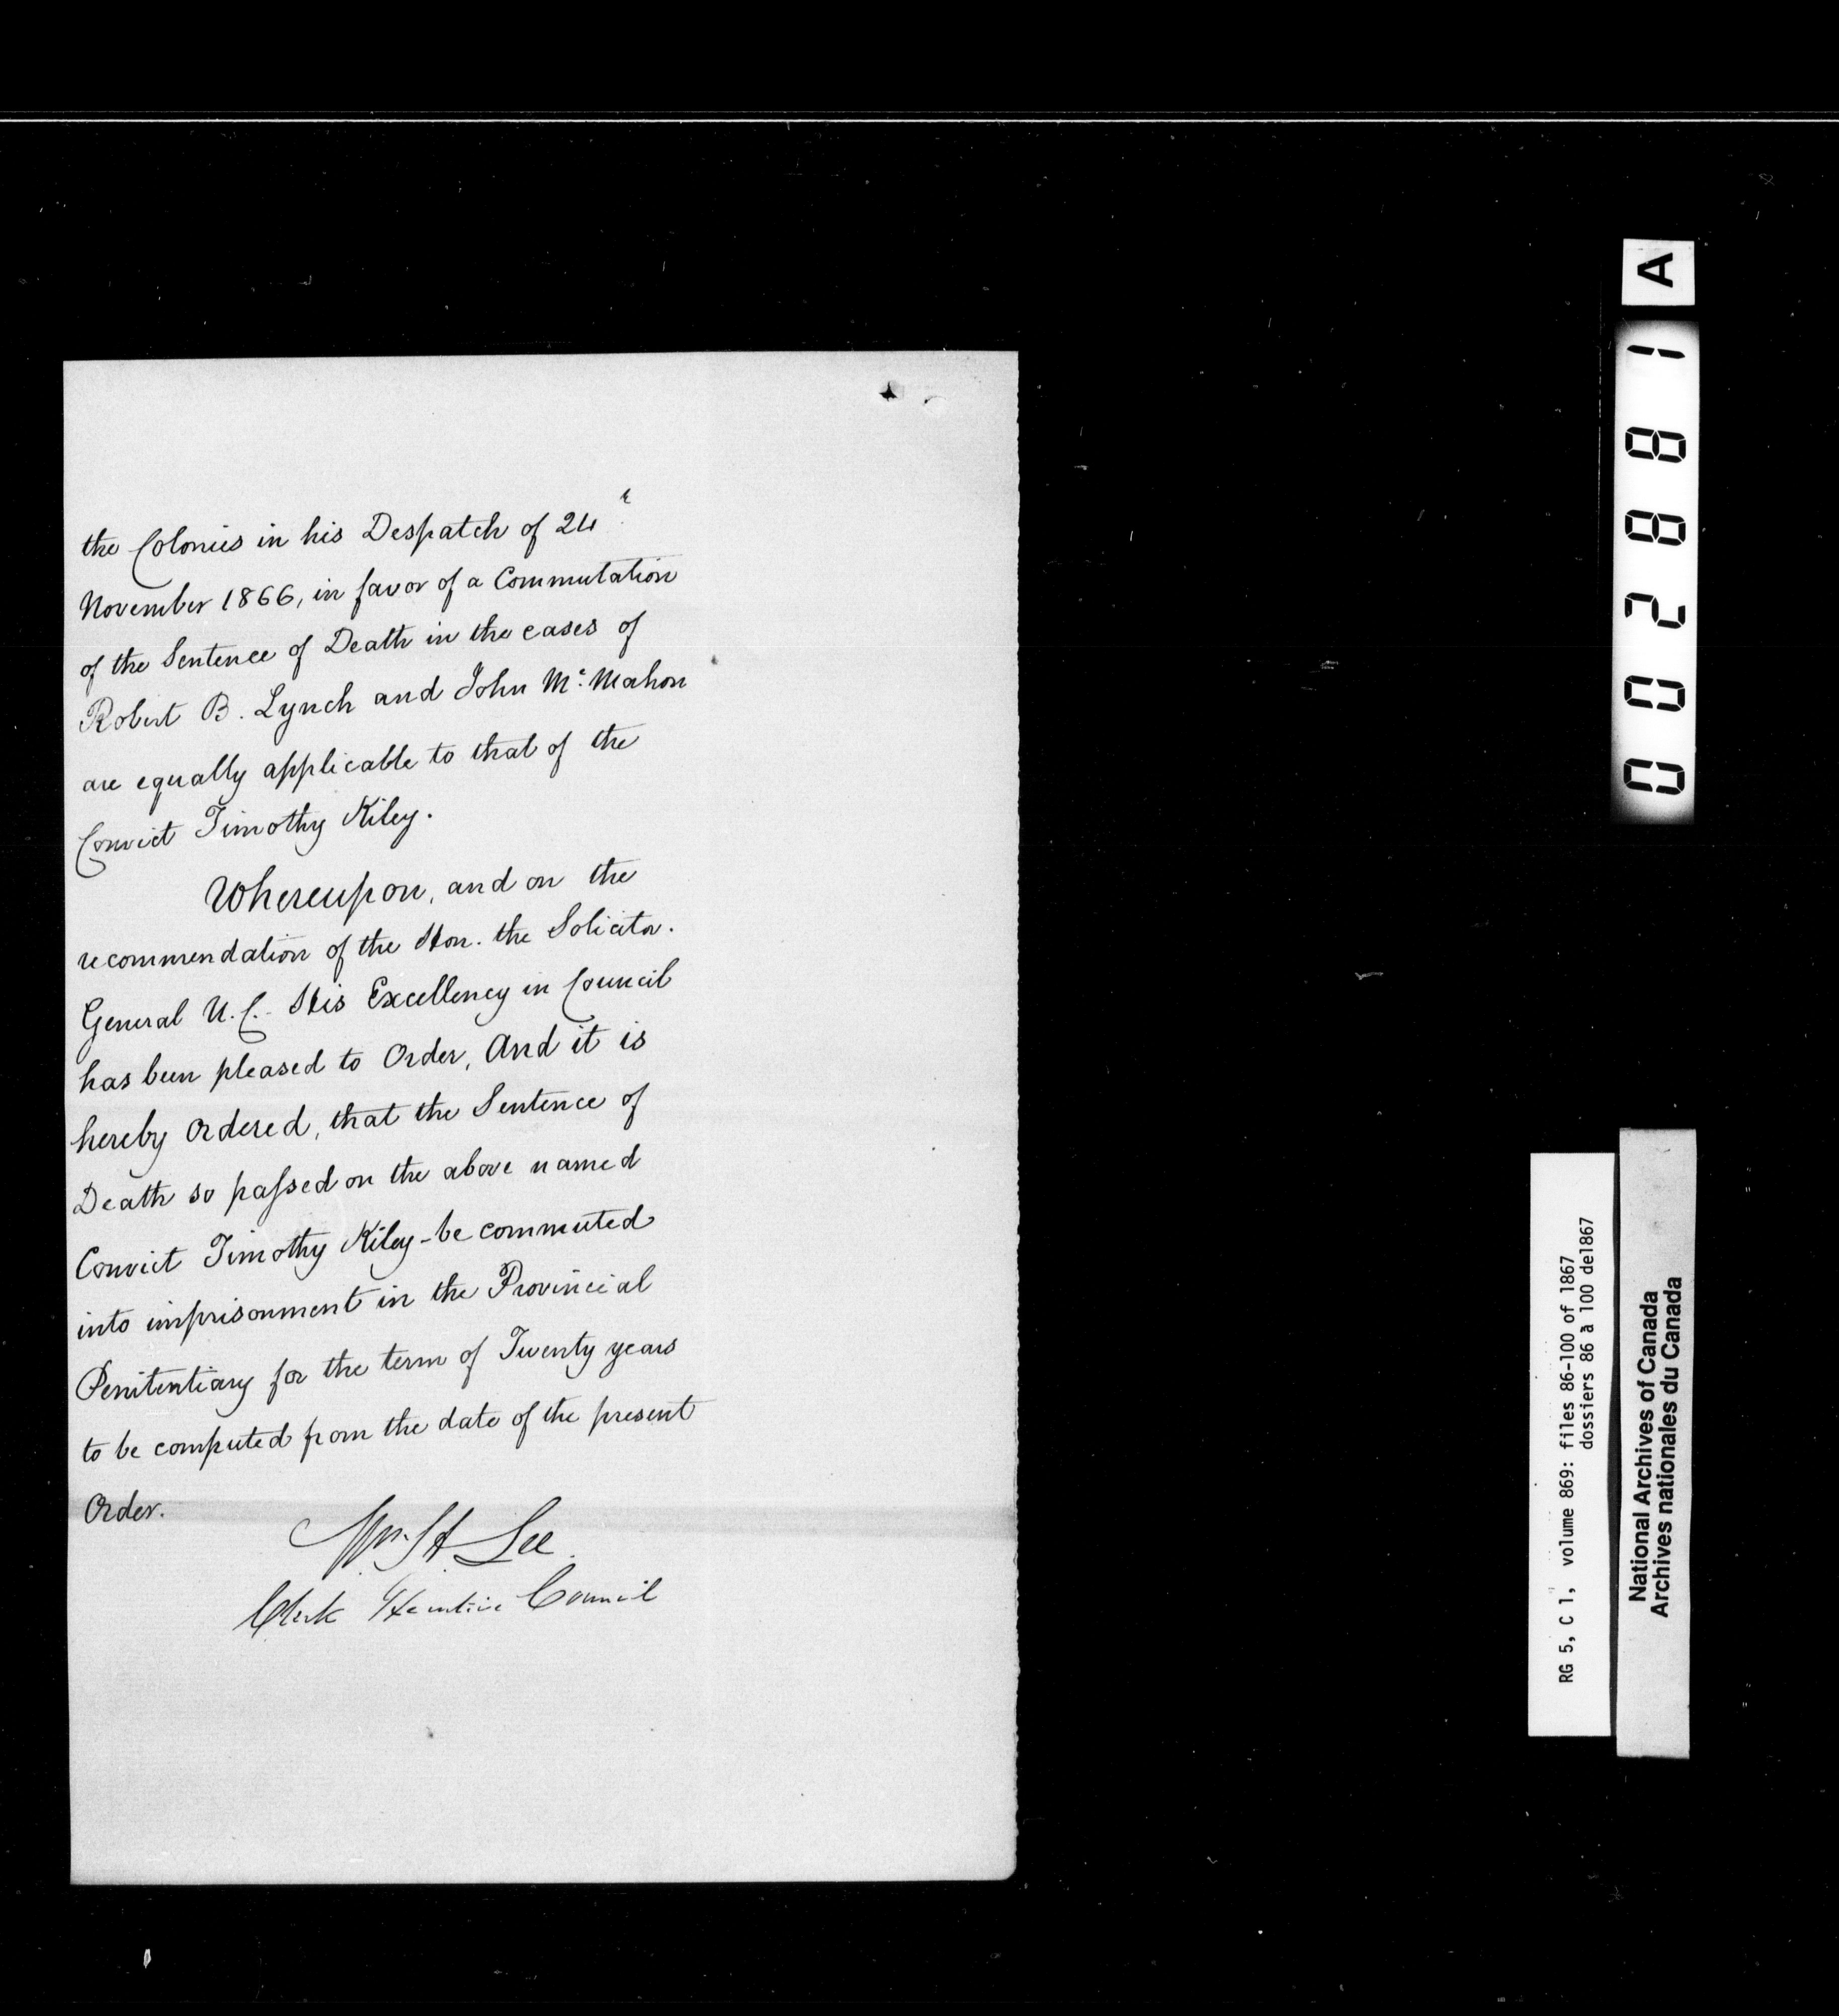 the Colonies in his Despatch of 24th
November 1866, in favor of a Commutation
of the Sentence of Death in the cases of
Robert B. Lynch and John Mc.Mahon
are equally applicable to that of the
Convict Timothy Kiley.
Whereupon, and on the
recommendation of the Hon. the Solicitor.
General U.C. His Excellency in Council
has been pleased to Order, And it is
hereby Ordered, that the Sentence of
Death so passed on the above named
Convict Timothy Kiley - be commuted
into imprisonment in the Provincial
Penitentiary for the term of Twenty years
to be computed from the date of the present
Order.
Wm H Lee
Clerk Executive Council
A
002881
RG 5, C 1, volume 869: files 86-100 of 1867
dossiers 86 à 100 de1867
National Archives of Canada
Archives nationales du Canada